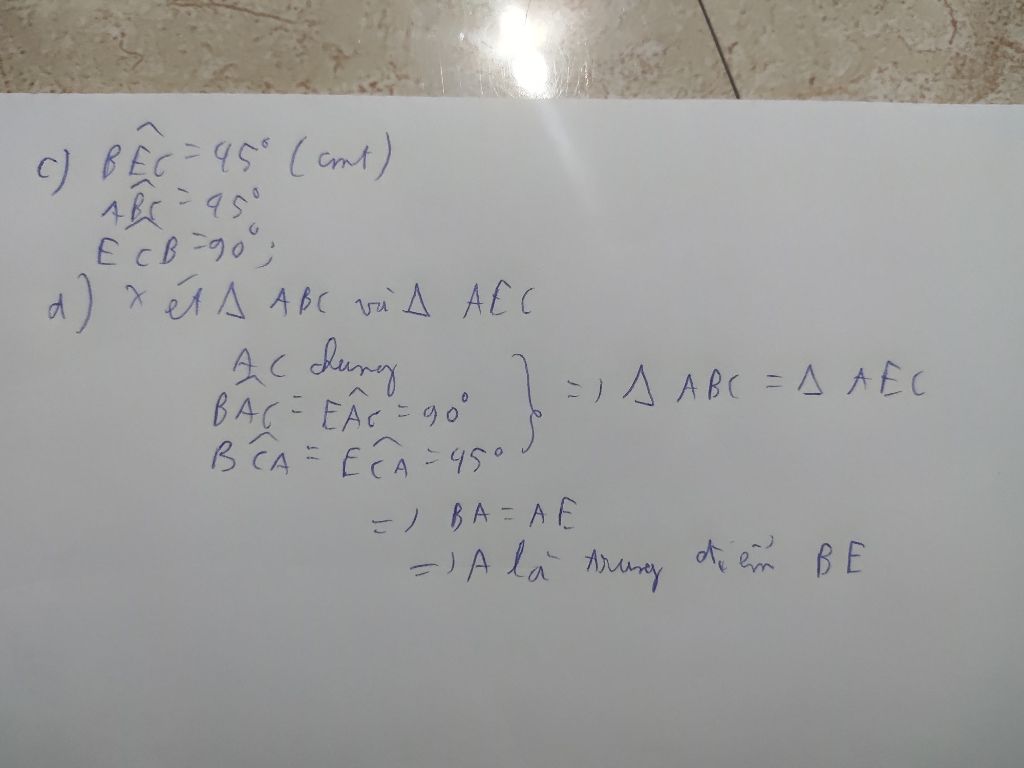 c) BÊC = 45° (cmt)
ABC = 45°
ECB = 90°;
d) xét Δ ABC và Δ AEC
AC chung
BAC = EAC = 90° => Δ ABC = Δ AEC
BCA = ECA = 45°
=> BA = AE
=> A là trung điểm BE